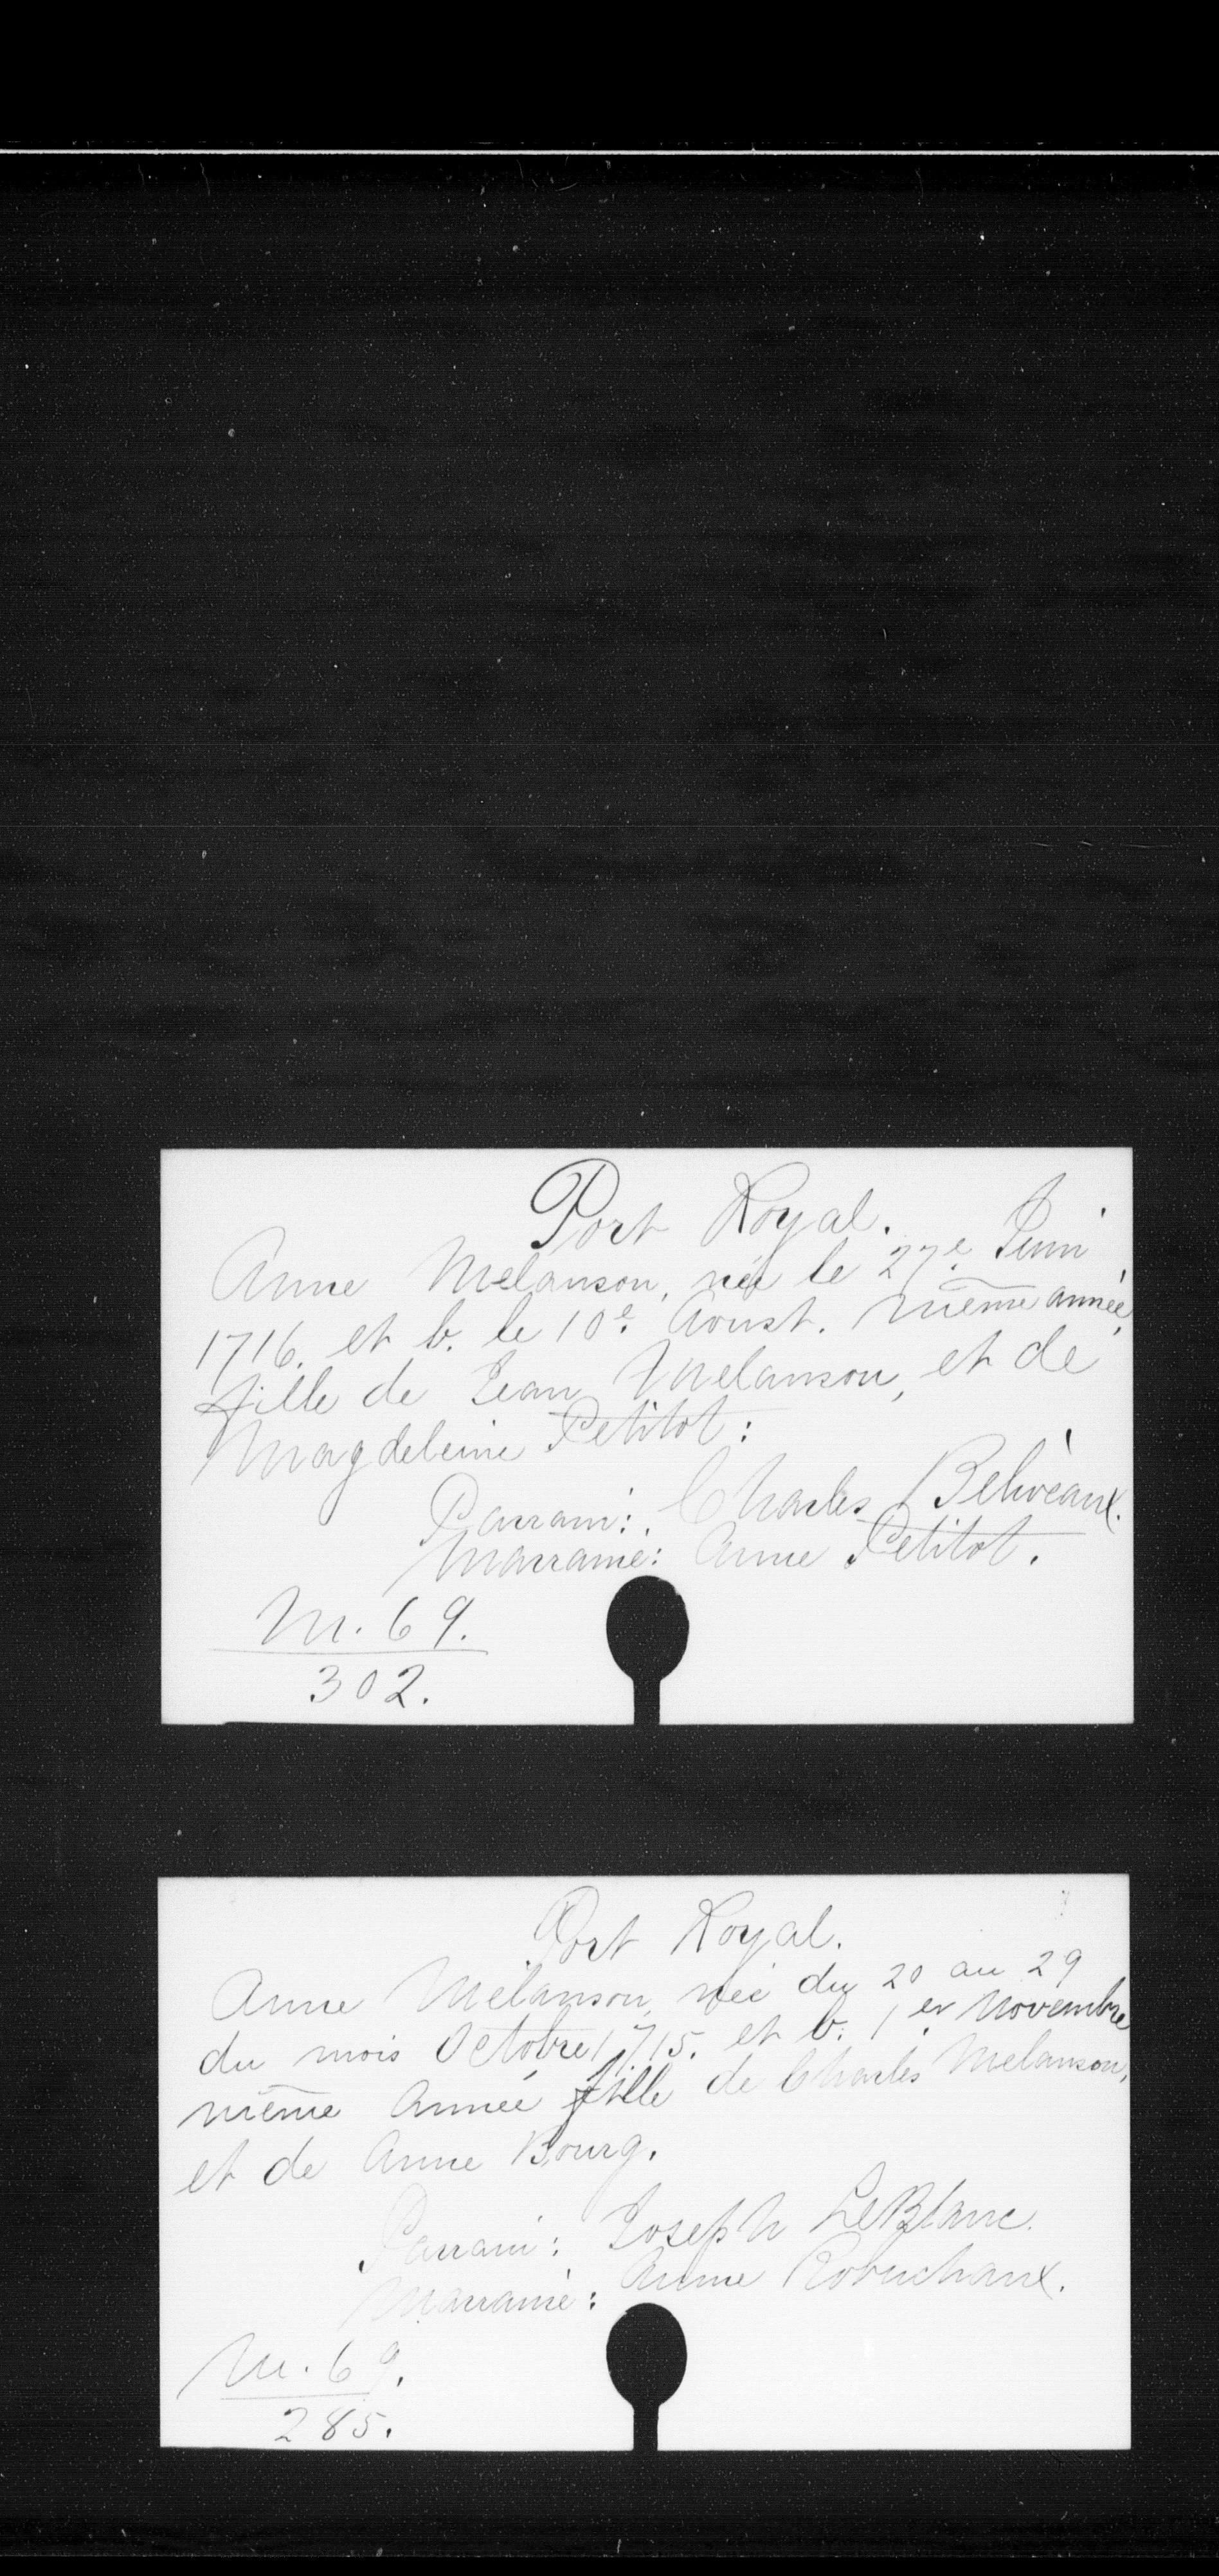 Port Royal.
Anne Melanson, née le 27e Juin
1716. et b. le 10e Aoust. même année,
fille de Jean Melanson, et de
Magdeleine Petitot:
Parrain: Charles Beliveaux.
Marraine: Anne Petitot.
M. 69.
302.
Port Royal.
Anne Melanson, née du 20 au 29
du mois Octobre 1715. et b. 1er Novembre
même Année fille de Charles Melanson,
et de Anne Bourg.
Parrain: Joseph LeBlanc.
Marraine: Anne Robuchaux.
M. 69.
285.